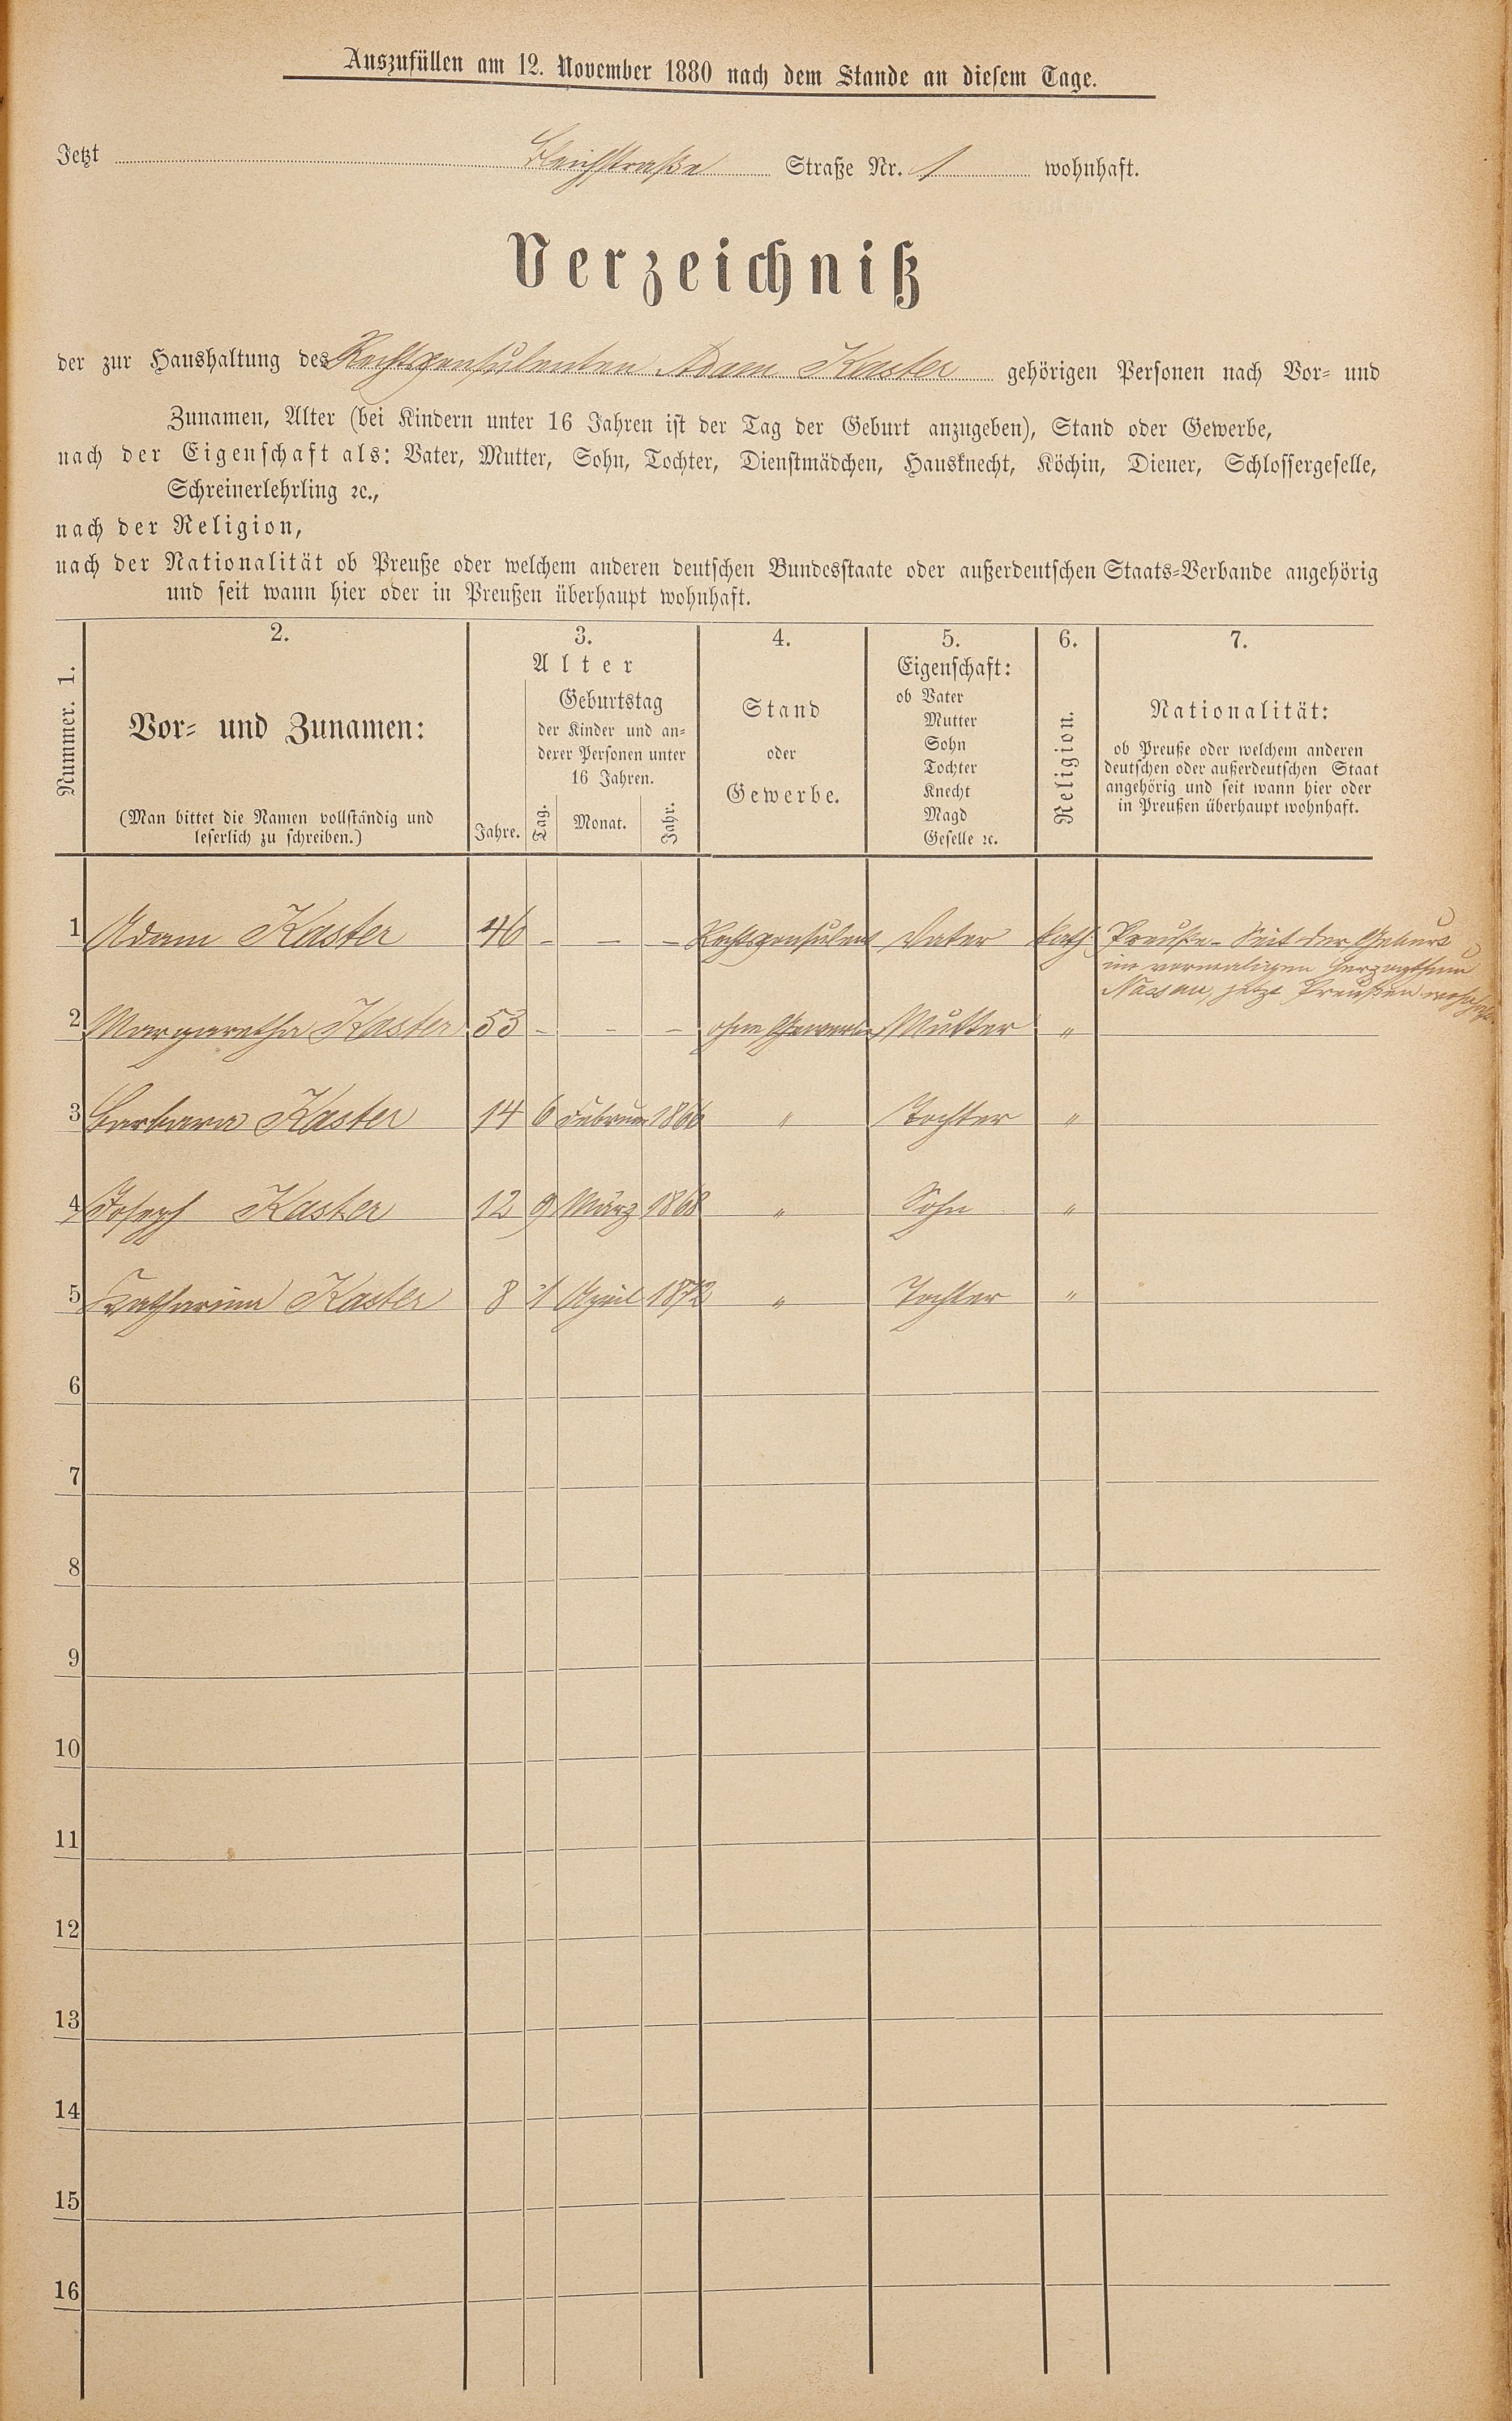 Auszufüllen am 12. November 1880 nach dem Stande an diesem Tage.
Jetzt Bleichstraße Straße Nr. 1 wohnhaft.
Verzeichniß
der zur Haushaltung des Rechtsconsulenten Adam Kaster gehörigen Personen nach Vor- und
Zunamen, Alter (bei Kindern unter 16 Jahren ist der Tag der Geburt anzugeben), Stand oder Gewerbe,
nach der Eigenschaft als: Vater, Mutter, Sohn, Tochter, Dienstmädchen, Hausknecht, Köchin, Diener, Schlossergeselle,
Schreinerlehrling ꝛc.,
nach der Religion,
nach der Nationalität ob Preuße oder welchem anderen deutschen Bundesstaate oder außerdeutschen Staats-Verbande angehörig
und seit wann hier oder in Preußen überhaupt wohnhaft.
Nummer. 1.
2.
Vor- und Zunamen:
(Man bittet die Namen vollständig und
leserlich zu schreiben.)
3.
Alter
Geburtstag
der Kinder und an-
derer Personen unter
16 Jahren.
Jahre. Tag. Monat. Jahr.
4.
Stand
oder
Gewerbe.
5.
Eigenschaft:
ob Vater
Mutter
Sohn
Tochter
Knecht
Magd
Geselle ꝛc.
6.
Religion.
7.
Nationalität:
ob Preuße oder welchem anderen
deutschen oder außerdeutschen Staat
angehörig und seit wann hier oder
in Preußen überhaupt wohnhaft.
1 Adam Kaster 46 – – – Rechtsconsulent Vater kath. Preuße – Seit der Geburt
im vormaligen Herzogthum
Nassau, jetzt Preußen wohnhaft.
2 Margaretha Kaster 53 – – – ohne Gewerbe Mutter "
3 Barbara Kaster 14 6 Februar 1866 " Tochter "
4 Joseph Kaster 12 9 März 1868 " Sohn "
5 Katharina Kaster 8 1 April 1872 " Tochter "
6
7
8
9
10
11
12
13
14
15
16